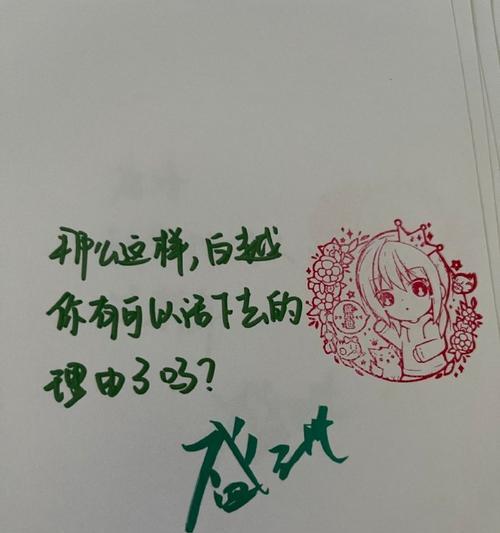 那么这样,白越
你有可以活下去的
理由了吗?